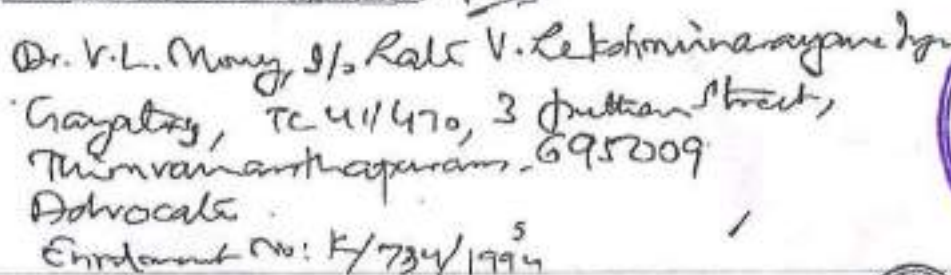 Dr. V.L. Mony, S/o Late V. Lekshminarayana Iyer
Gayatry, TC 41/470, 3 Puthen Street,
Thiruvananthapuram - 695009
Advocate.
Enrolment No: K/734/1995